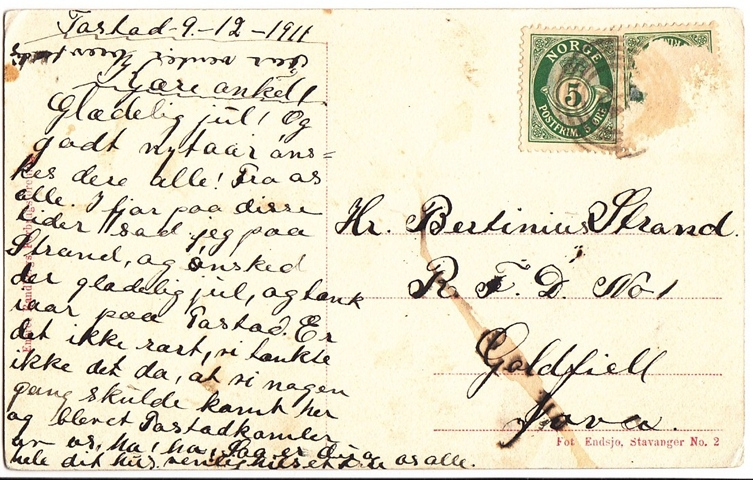 Tastad - 9 - 12 - 1911
Kjære onkel!
Glædelig jul! Og
godt nytaar øns=
kes dere alle! Fra os
alle. I fjor paa disse
tider sad jeg paa
Strand, og ønsked
der glædelig jul, og tænk
iaar paa Tastad. Er
det ikke rart, vi tænkte
ikke det da, at vi nogen
gang skulde komt her
og blevet Tastad
av os, ha, ha,
hele dit hus os alle.
NORGE
5
POSTFRIM. 5 ØRE
Hr. Bertinius Strand.
R. F. D. No 1
Goldfiell
Jova.
Fot Endsjø, Stavanger No. 2